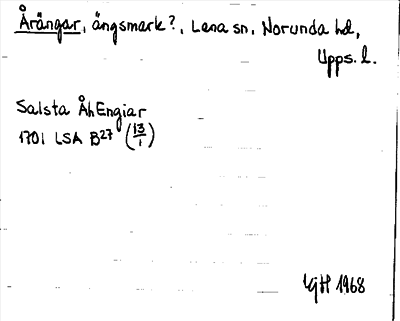 Årängar, ängsmark?, Lena sn, Norunda hd,
Upps. l.
Salsta ÅhEngiar
1701 LSA B27 (13/1)
1968